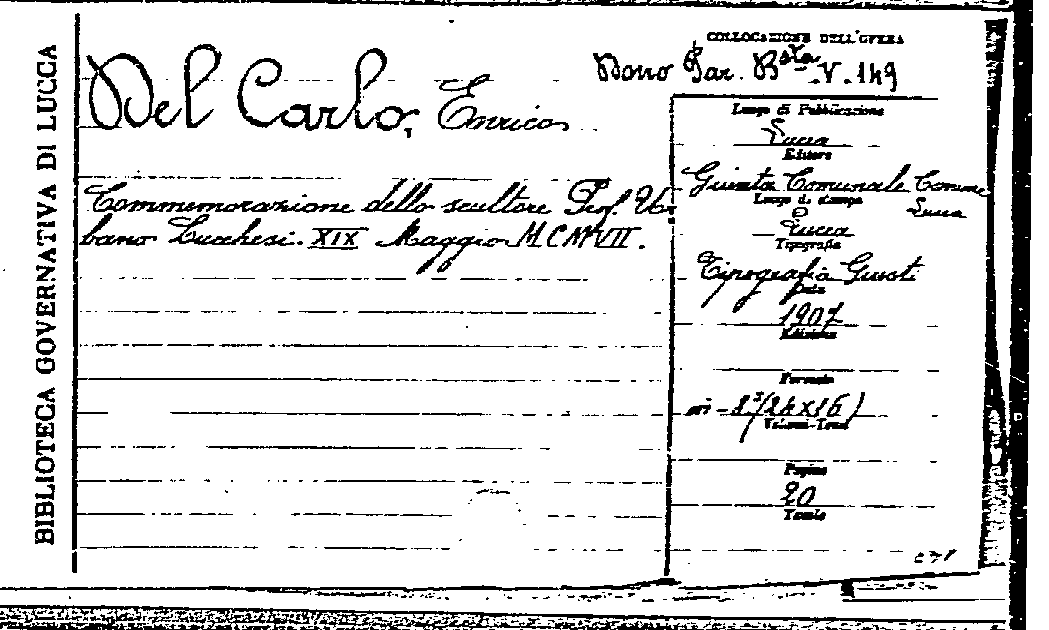 BIBLIOTECA GOVERNATIVA DI LUCCA
COLLOCAZIONE DELL'OPERA
Dono Gar. Bsta. V. 149
Del Carlo, Enrico
Commemorazione dello scultore Prof. Ur-
bano Lucchesi. XIX Maggio MCMVII.
Luogo di Pubblicazione
Lucca
Editore
Giunta Comunale Comune
Lucca
Luogo di stampa
Lucca
Tipografia
Tipografia Giusti
Data
1907
Edizione
Formato
in-8°(24x16)
Volumi-Tomi
Pagine
20
Tavole